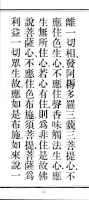 離一切相發阿耨多羅三藐三菩提心不
應住色生心不應住聲香味觸法生心應
生無所住心若心有住則為非住是故佛
說菩薩心不應住色布施須菩提菩薩為
利益一切眾生故應如是布施如來說一